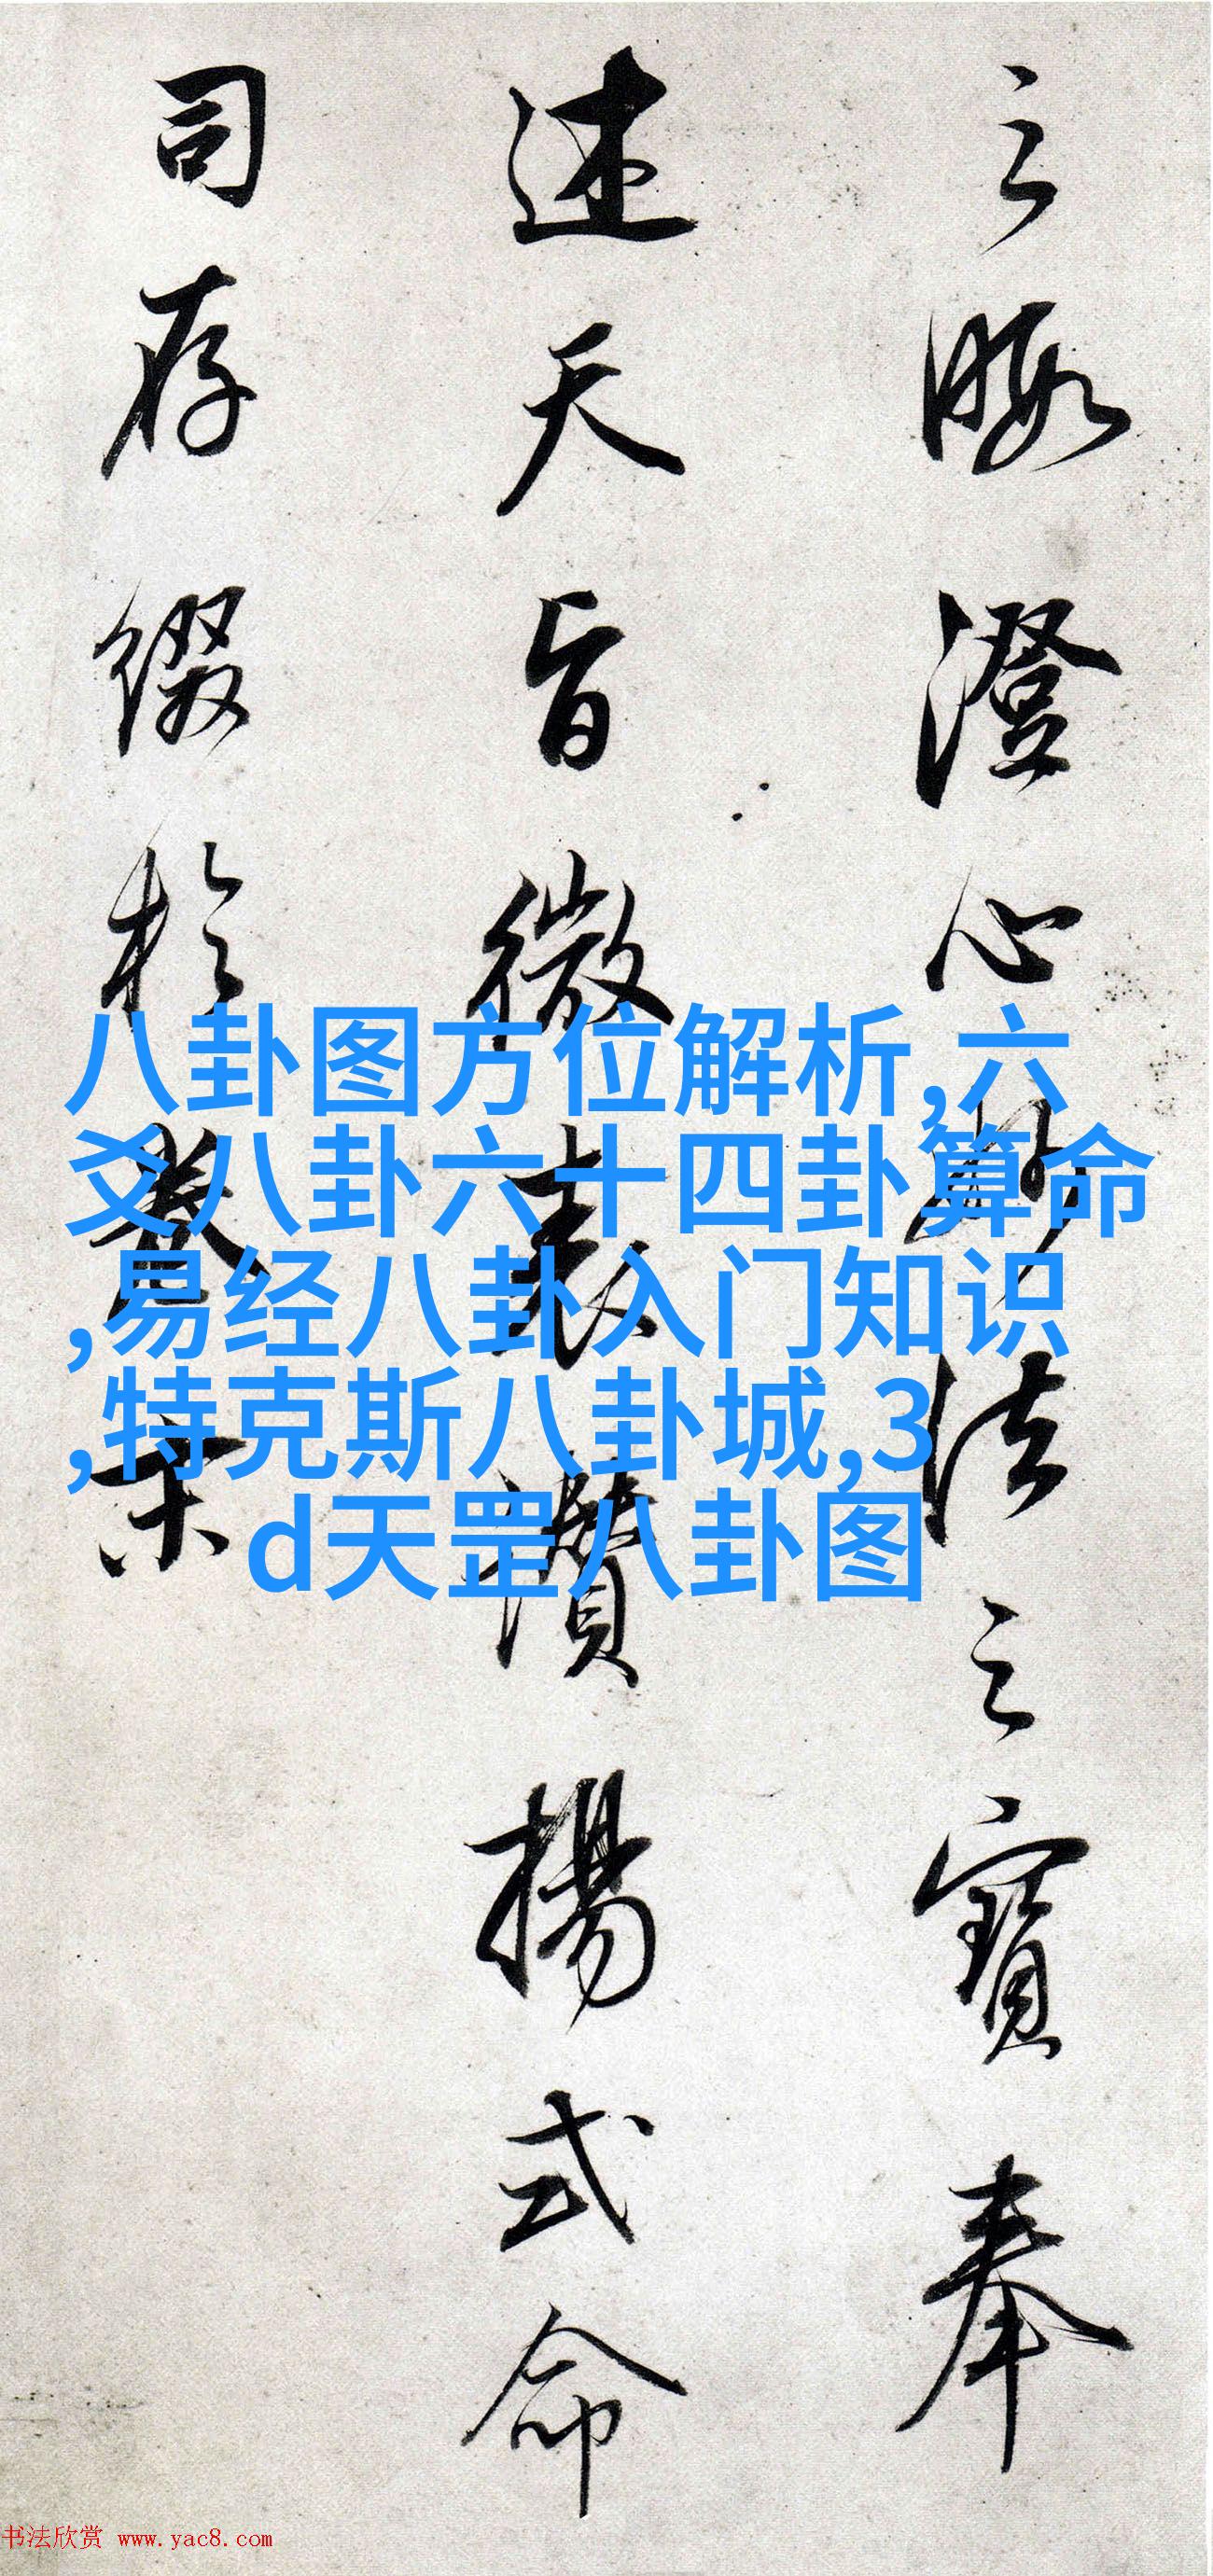 之暇澄心妙法之寶奉
述天旨微表讚揚式命
司存綴於卷末
八卦图方位解析,六
爻八卦六十四卦算命
,易经八卦入门知识
,特克斯八卦城,3
d天罡八卦图
书法欣赏 www.yac8.com